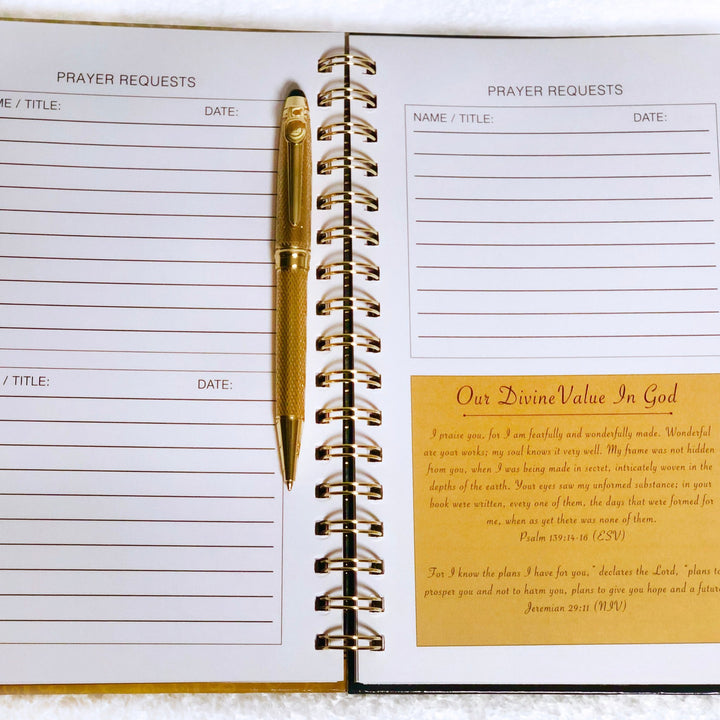 PRAYER REQUESTS
ME / TITLE:
DATE:
/ TITLE:
DATE:
PRAYER REQUESTS
NAME / TITLE:
DATE:
Our Divine Value In God
I praise you, for I am fearfully and wonderfully made. Wonderful
are your works; my soul knows it very well. My frame was not hidden
from you, when I was being made in secret, intricately woven in the
depths of the earth. Your eyes saw my unformed substance; in your
book were written, every one of them, the days that were formed for
me, when as yet there was none of them.
Psalm 139:14-16 (ESV)
For I know the plans I have for you," declares the Lord, "plans to
prosper you and not to harm you, plans to give you hope and a future
Jeremian 29:11 (NIV)